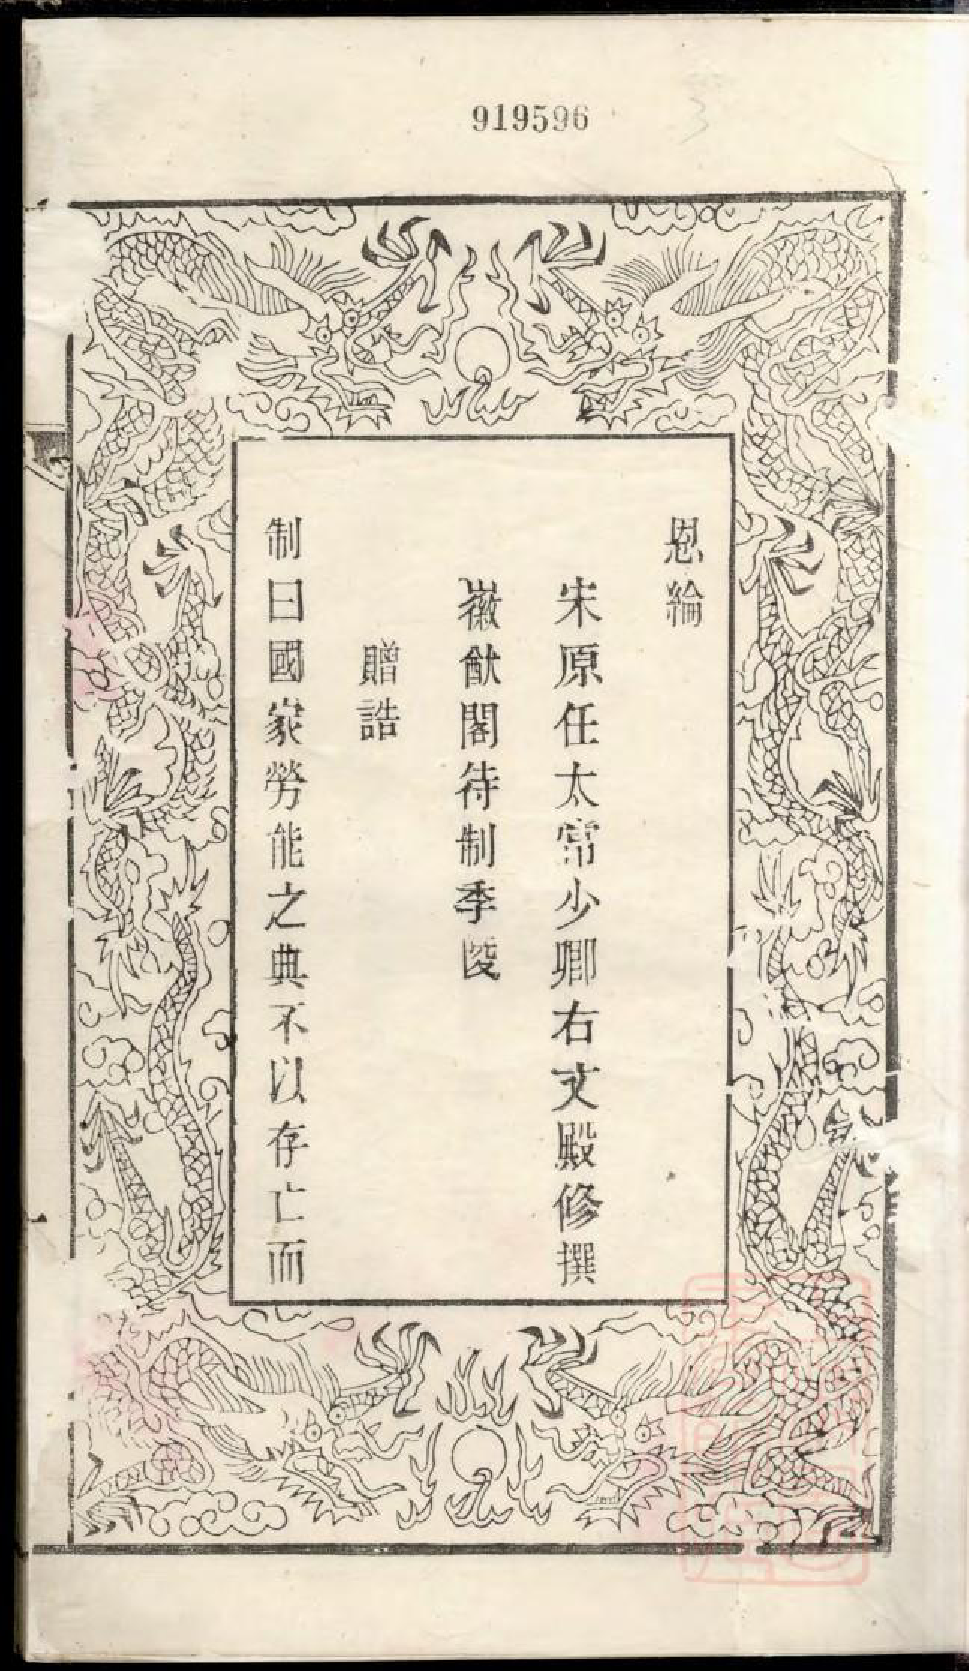 919596
恩綸
宋原任太常少卿右文殿修撰
徽猷閣待制季陵
贈誥
制曰國家勞能之典不以存亡而